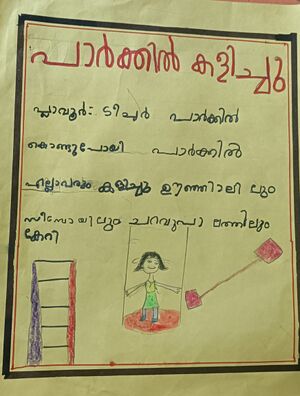 പാർക്കിൽ കളിച്ചു
പ്ലാവൂർ:- ടീച്ചർ പാർക്കിൽ
കൊണ്ടുപോയി പാർക്കിൽ
എല്ലാവരും കളിച്ചു ഊഞ്ഞാലി ലും
സീസോയിലും ചറവുപാ ലത്തിലും
കേറി